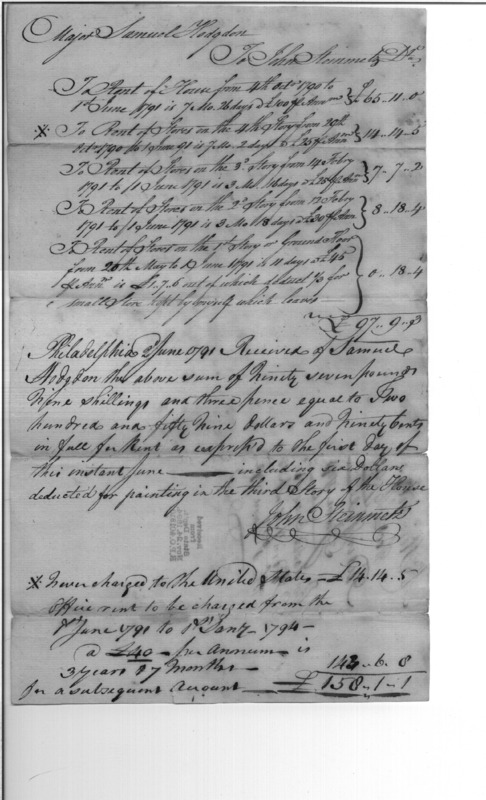 Major Samuel Hodgdon
To John Stemmetz Dr.
To Rent of House from 4th Octr. 1790 to
1st June 1791 is 7 Mo. 26 days @ £100 pr Annm £65..11..0
※ To Rent of Stores on the 4th Story from 29th
Octr. 1790 to 1 June 91 is 7 Mo. 2 days @ £25 pr Annm 14..14..5
To Rent of Stores on the 3d Story from 14 Feby
1791 to 1 June 1791 is 3 Mo. 16 days @ £25 pr Annm 7..7..2
To Rent of Stores on the 2d Story from 13 Feby
1791 to 1 June 1791 is 3 Mo. 18 days @ £30 pr Ann 8..18..4
To Rent of Stores on the 1st Story or Ground Floor
from 20th May to 1 June 1791 is 11 days @ £45
pr Annm is £1..7..6 out of which deduct 1/3 for
small Store kept by myself which leaves 0..18..4
£97..9..3
Philadelphia 2 June 1791 Received of Samuel
Hodgdon the above sum of Ninety seven pounds
Nine Shillings and three pence equal to Two
hundred and fifty Nine dollars and Ninety Cents
in full for Rent as express'd to the first day of
this instant June including Six Dollars
deducted for painting in the third Story of the House
John Steinmetz
※ Never charged to the United States = £14..14..5
Office rent to be charged from the
1st June 1791 to 1st Jany 1794
a £40 per Annum is
3 years & 7 Months 143..6..8
for a subsequent Account £158..1..1